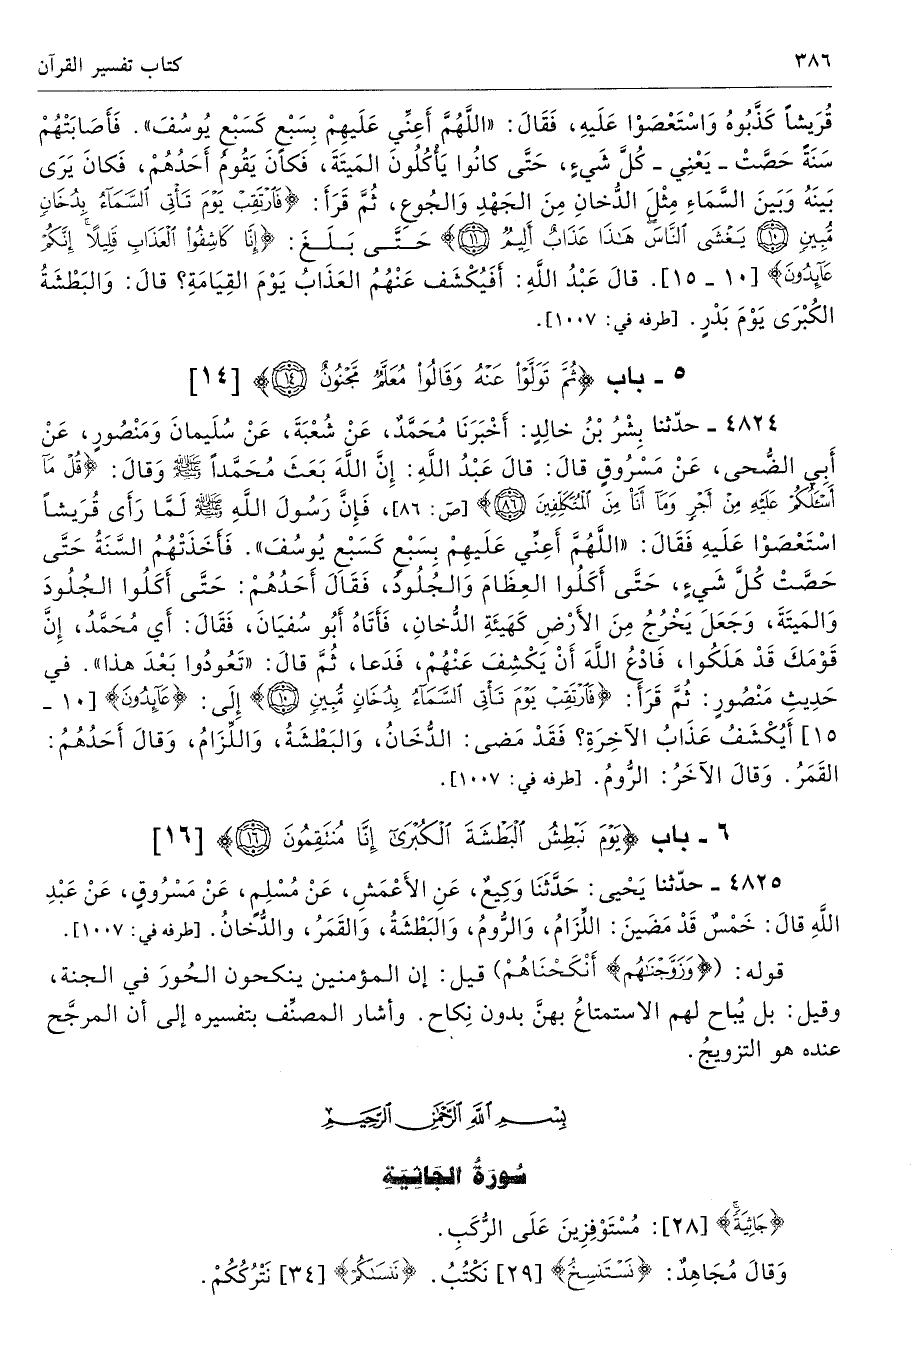 ٣٨٦
كتاب تفسير القرآن
قُرَيْشاً كَذَّبُوهُ وَاسْتَعْصَوْا عَلَيهِ، فَقَالَ: «اللَّهُمَّ أَعِنِّي عَلَيهِمْ بِسَبْعٍ كَسَبْعِ يُوسُفَ». فَأَصَابَتْهُمْ
سَنَةٌ حَصَّتْ ـ يَعْنِي ـ كُلَّ شَيءٍ، حَتَّى كانُوا يَأْكُلُونَ المَيتَةَ، فَكانَ يَقُومُ أَحَدُهُمْ، فَكانَ يَرَى
بَينَهُ وَبَينَ السَّمَاءِ مِثْلَ الدُّخانِ مِنَ الجَهْدِ وَالجُوعِ، ثُمَّ قَرَأَ: ﴿فَارْتَقِبْ يَوْمَ تَأْتِى السَّمَآءُ بِدُخَانٍ
مُّبِينٍ ۝١٠ يَغْشَى النَّاسَ هَٰذَا عَذَابٌ أَلِيمٌ ۝١١﴾ حَـتَّـى بَـلَـغَ: ﴿إِنَّا كَاشِفُوا۟ الْعَذَابِ قَلِيلًا ۚ إِنَّكُمْ
عَآئِدُونَ﴾ [١٠ ـ ١٥]. قالَ عَبْدُ اللَّهِ: أَفَيُكْشَف عَنْهُمُ العَذَابُ يَوْمَ القِيَامَةِ؟ قالَ: وَالبَطْشَةُ
الكُبْرَى يَوْمَ بَدْرٍ. [طرفه في: ١٠٠٧].
٥ ـ باب ﴿ثُمَّ تَوَلَّوْا۟ عَنْهُ وَقَالُوا۟ مُعَلَّمٌ مَّجْنُونٌ ۝١٤﴾ [١٤]
٤٨٢٤ ـ حدّثنا بِشْرُ بْنُ خالِدٍ: أَخْبَرَنَا مُحَمَّدٌ، عَنْ شُعْبَةَ، عَنْ سُلَيمانَ وَمَنْصُورٍ، عَنْ
أَبِي الضُّحى، عَنْ مَسْرُوقٍ قالَ: قالَ عَبْدُ اللَّهِ: إِنَّ اللَّهَ بَعَثَ مُحَمَّداً ﷺ وَقالَ: ﴿قُلْ مَآ
أَسْـَٔلُكُمْ عَلَيْهِ مِنْ أَجْرٍ وَمَآ أَنَا۠ مِنَ الْمُتَكَلِّفِينَ ۝٨٦﴾ [صَ: ٨٦]، فَإِنَّ رَسُولَ اللَّهِ ﷺ لَمَّا رَأَى قُرَيشاً
اسْتَعْصَوْا عَلَيهِ فَقَالَ: «اللَّهُمَّ أَعِنِّي عَلَيهِمْ بِسَبْعٍ كَسَبْعِ يُوسُفَ». فَأَخَذَتْهُمُ السَّنَةُ حَتَّى
حَصَّتْ كُلَّ شَيءٍ، حَتَّى أَكَلُوا العِظَامَ وَالجُلُودَ، فَقَالَ أَحَدُهُمْ: حَتَّى أَكَلُوا الجُلُودَ
وَالمَيتَةَ، وَجَعَلَ يَخْرُجُ مِنَ الأَرْضِ كَهَيئَةِ الدُّخانِ، فَأَتَاهُ أَبُو سُفيَانَ، فَقَالَ: أَي مُحَمَّدُ، إِنَّ
قَوْمَكَ قَدْ هَلَكُوا، فَادْعُ اللَّهَ أَنْ يَكْشِفَ عَنْهُمْ، فَدَعا، ثُمَّ قالَ: «تَعُودُوا بَعْدَ هذا». في
حَدِيثِ مَنْصُورٍ: ثُمَّ قَرَأَ: ﴿فَارْتَقِبْ يَوْمَ تَأْتِى السَّمَآءُ بِدُخَانٍ مُّبِينٍ ۝١٠﴾ إِلَى: ﴿عَآئِدُونَ﴾ [١٠ ـ
١٥] أَيُكْشَفُ عَذَابُ الآخِرَةِ؟ فَقَدْ مَضى: الدُّخَانُ، وَالبَطْشَةُ، وَاللِّزَامُ، وَقالَ أَحَدُهُمُ:
القَمَرُ. وَقالَ الآخَرُ: الرُّومُ. [طرفه في: ١٠٠٧].
٦ ـ باب ﴿يَوْمَ نَبْطِشُ الْبَطْشَةَ الْكُبْرَىٰٓ إِنَّا مُنتَقِمُونَ ۝١٦﴾ [١٦]
٤٨٢٥ ـ حدّثنا يَحْيى: حَدَّثَنَا وَكِيعٌ، عَنِ الأَعْمَشِ، عَنْ مُسْلِمٍ، عَنْ مَسْرُوقٍ، عَنْ عَبْدِ
اللَّهِ قالَ: خَمْسٌ قَدْ مَضَينَ: اللِّزَامُ، وَالرُّومُ، وَالبَطْشَةُ، وَالقَمَرُ، والدُّخانُ. [طرفه في: ١٠٠٧].
قوله: (﴿وَزَوَّجْنَٰهُم﴾ أَنْكَحْنَاهُمْ) قيل: إن المؤمنين ينكحون الحُورَ في الجنة،
وقيل: بل يُباح لهم الاستمتاعُ بهنَّ بدون نِكاح. وأشار المصنِّف بتفسيره إلى أن المرجَّح
عنده هو التزويجُ.
بِسْمِ اللَّهِ الرَّحْمَٰنِ الرَّحِيمِ
سُورَةُ الجَاثِيَةِ
﴿جَاثِيَةً ۚ﴾ [٢٨]: مُسْتَوْفِزِينَ عَلَى الرُّكَبِ.
وَقالَ مُجَاهِدٌ: ﴿نَسْتَنسِخُ﴾ [٢٩] نَكْتُبُ. ﴿نَنسَىٰكُمْ﴾ [٣٤] نَتْرُكُكُمْ.